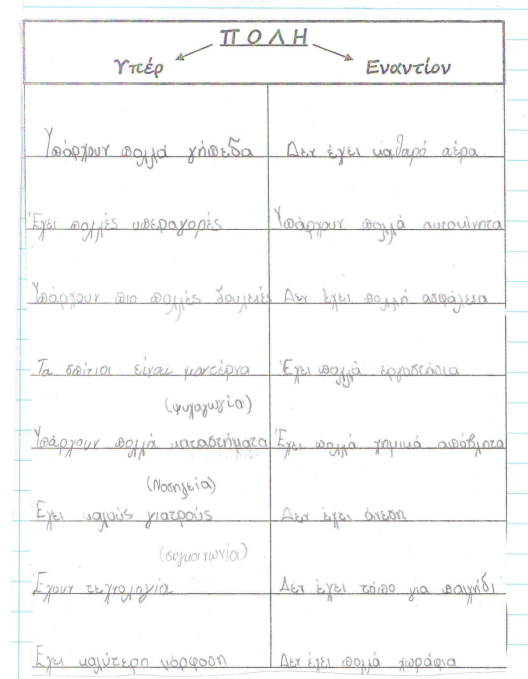 ΠΟΛΗ
Υπέρ Εναντίον
Υπάρχουν πολλά γήπεδα Δεν έχει καθαρό αέρα
Έχει πολλές υπεραγορές Υπάρχουν πολλά αυτοκίνητα
Υπάρχουν πιο πολλές δουλειές Δεν έχει πολλή ασφάλεια
Τα σπίτια είναι μοντέρνα Έχει πολλά εργοστάσια
(ψυχαγωγία)
Υπάρχουν πολλά καταστήματα Έχει πολλά χημικά απόβλητα
(Νοσηλεία)
Έχει καλούς γιατρούς Δεν έχει άνεση
(συγκοινωνία)
Έχουν τεχνολογία Δεν έχει τόπο για παιχνίδι
Έχει καλύτερη μόρφοση Δεν έχει πολλά χωράφια